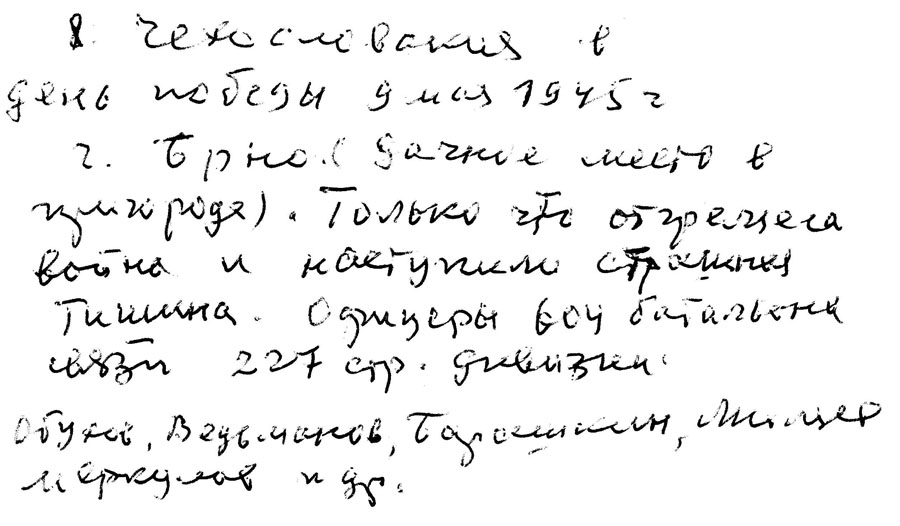 8. Чехословакия в
день победы 9 мая 1945 г
г. Брно (дачное место в
пригороде). Только что отгремела
война и наступила страшная
тишина. Офицеры 604 батальона
связи 227 стр. дивизии:
Обухов, Ведьманов, Барашкин,
Меркулов и др.